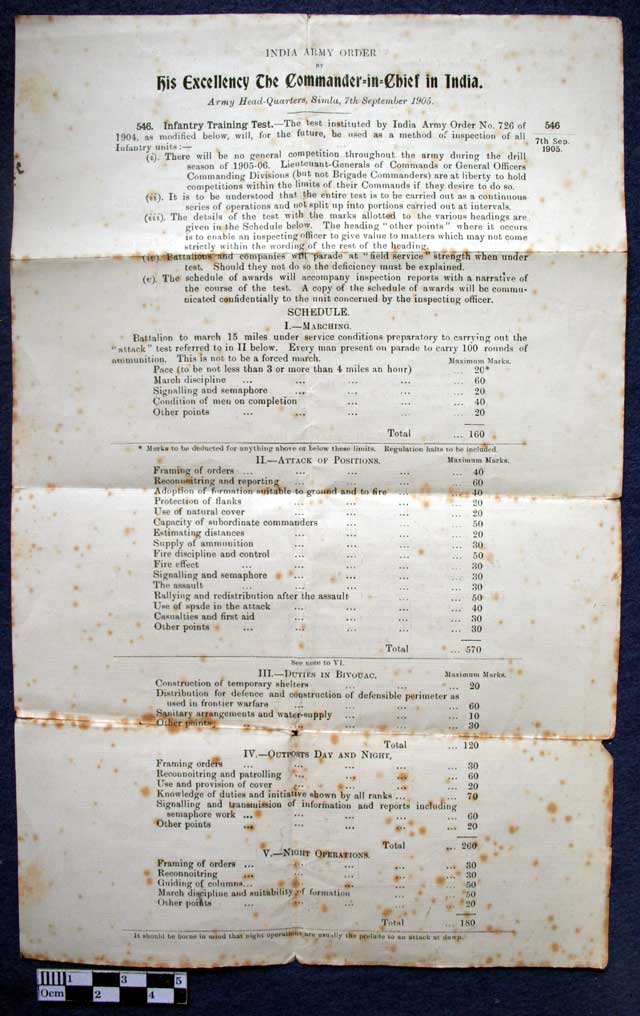 INDIA ARMY ORDER
BY
His Excellency The Commander-in-Chief in India.
Army Head-Quarters, Simla, 7th September 1905.
546. Infantry Training Test.—The test instituted by India Army Order No. 726 of
1904, as modified below, will, for the future, be used as a method of inspection of all
Infantry units:—
546
7th Sep.
1905.
(i). There will be no general competition throughout the army during the drill
season of 1905-06. Lieutenant-Generals of Commands or General Officers
Commanding Divisions (but not Brigade Commanders) are at liberty to hold
competitions within the limits of their Commands if they desire to do so.
(ii). It is to be understood that the entire test is to be carried out as a continuous
series of operations and not split up into portions carried out at intervals.
(iii). The details of the test with the marks allotted to the various headings are
given in the Schedule below. The heading "other points" where it occurs
is to enable an inspecting officer to give value to matters which may not come
strictly within the wording of the rest of the heading.
(iv). Battalions and companies will parade at "field service" strength when under
test. Should they not do so the deficiency must be explained.
(v). The schedule of awards will accompany inspection reports with a narrative of
the course of the test. A copy of the schedule of awards will be commu-
nicated confidentially to the unit concerned by the inspecting officer.
SCHEDULE.
I.—MARCHING.
Battalion to march 15 miles under service conditions preparatory to carrying out the
"attack" test referred to in II below. Every man present on parade to carry 100 rounds of
ammunition. This is not to be a forced march. Maximum Marks.
Pace (to be not less than 3 or more than 4 miles an hour) ... 20*
March discipline ... ... ... ... ... 60
Signalling and semaphore ... ... ... ... 20
Condition of men on completion ... ... ... 40
Other points ... ... ... ... 20
Total ... 160
* Marks to be deducted for anything above or below these limits. Regulation halts to be included.
II.—ATTACK OF POSITIONS. Maximum Marks.
Framing of orders ... ... ... ... ... 40
Reconnoitring and reporting ... ... ... ... 60
Adoption of formation suitable to ground and to fire ... ... 40
Protection of flanks ... ... ... ... 20
Use of natural cover ... ... ... ... 20
Capacity of subordinate commanders ... ... ... 50
Estimating distances ... ... ... ... 20
Supply of ammunition ... ... ... ... 30
Fire discipline and control ... ... ... ... 50
Fire effect ... ... ... ... ... 30
Signalling and semaphore ... ... ... ... 30
The assault ... ... ... ... ... 30
Rallying and redistribution after the assault ... ... ... 50
Use of spade in the attack ... ... ... ... 40
Casualties and first aid ... ... ... ... 30
Other points ... ... ... ... 30
Total ... 570
See note to VI.
III.—DUTIES IN BIVOUAC. Maximum Marks.
Construction of temporary shelters ... ... ... 20
Distribution for defence and construction of defensible perimeter as
used in frontier warfare ... ... ... ... 60
Sanitary arrangements and water-supply ... ... ... 10
Other points ... ... ... ... 30
Total ... 120
IV.—OUTPOSTS DAY AND NIGHT,
Framing orders ... ... ... ... ... 30
Reconnoitring and patrolling ... ... ... ... 60
Use and provision of cover ... ... ... ... 20
Knowledge of duties and initiative shown by all ranks ... ... 70
Signalling and transmission of information and reports including
semaphore work ... ... ... ... ... 60
Other points ... ... ... ... 20
Total ... 260
V.—NIGHT OPERATIONS.
Framing of orders ... ... ... ... ... 30
Reconnoitring ... ... ... ... 30
Guiding of columns... ... ... ... 50
March discipline and suitability of formation ... ... 50
Other points ... ... ... ... 20
Total ... 180
It should be borne in mind that night operations are usually the prelude to an attack at dawn.
0cm 1 2 3 4 5